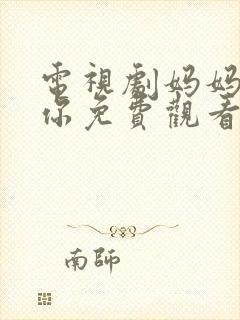 電視劇妈妈
你免費觀看
南師